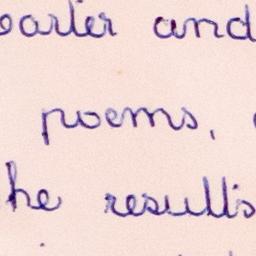 earlier and
poems,
he results